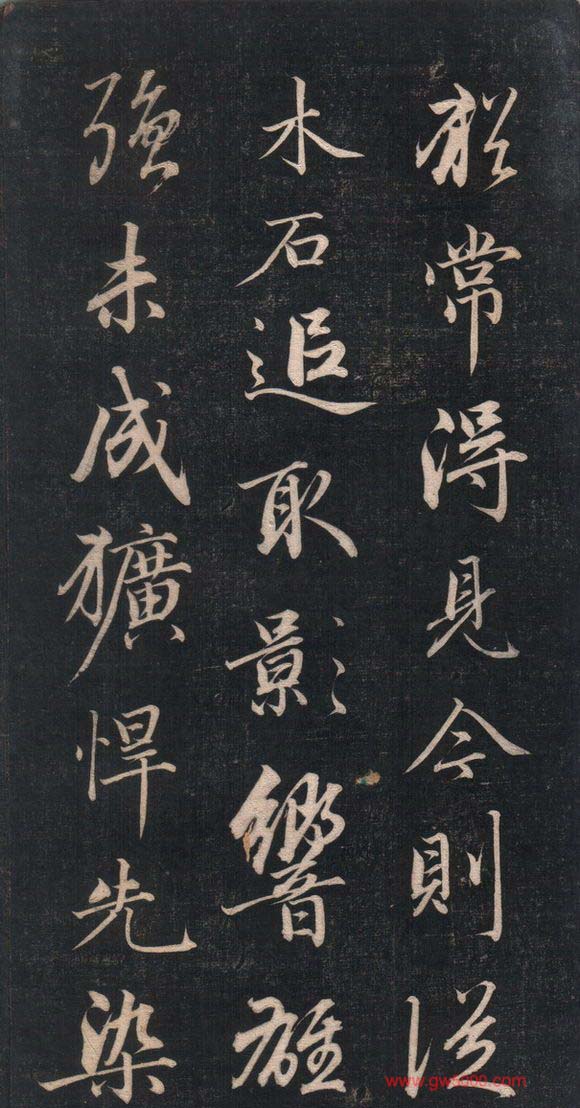 猶常得見今則從
木石追取影響雄
強未成獷悍先染
www.gw5000.com